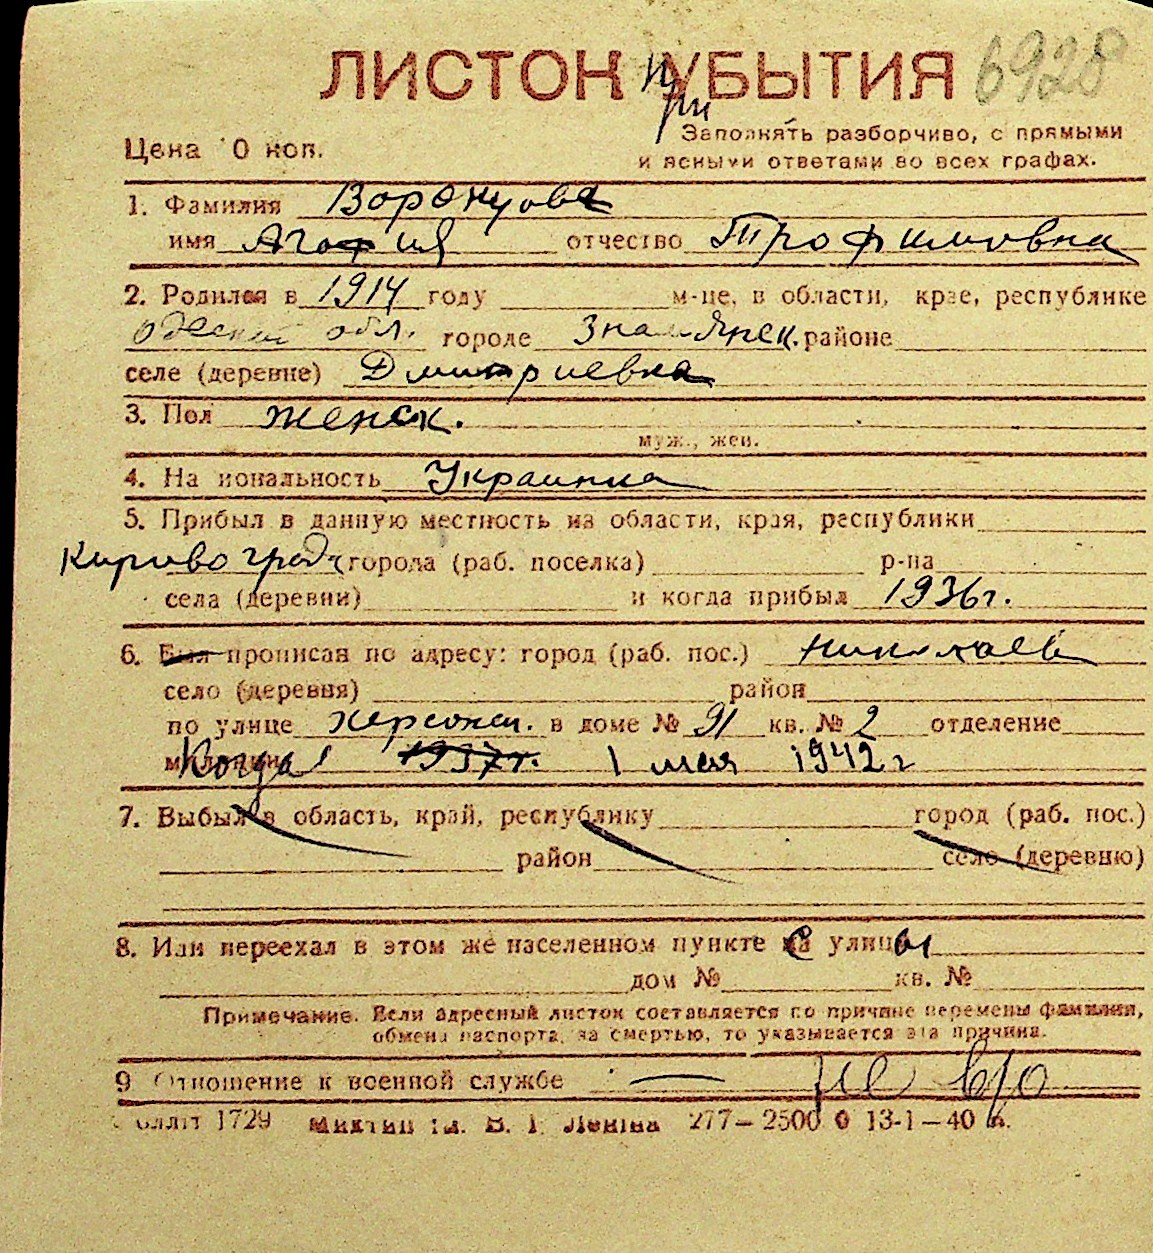 ЛИСТОК УБЫТИЯ 6928
при
Цена 0 коп. Заполнять разборчиво, с прямыми
и ясными ответами во всех графах.
1. Фамилия Воронцова
имя Агафия отчество Трофимовна
2. Родился в 1914 году м-це, в области, крае, республике
Одеской обл. городе Знамянск. районе
селе (деревне) Дмитриевка
3. Пол женск.
муж., жен.
4. На иональность Украинка
5. Прибыл в данную местность из области, края, республики
Кировоград города (раб. поселка) р-на
села (деревни) и когда прибыл 1936 г.
6. Был прописан по адресу: город (раб. пос.) Николаев
село (деревня) район
по улице Херсонск. в доме № 91 кв. № 2 отделение
Когда 1937 г. 1 мая 1942 г
7. Выбыл в область, край, республику город (раб. пос.)
район село (деревню)
8. Или переехал в этом же населенном пункте с улицы
дом № кв. №
Примечание. Если адресный листок составляется по причине перемены фамилии,
обмена паспорта, за смертью, то указывается эта причина.
9 Отношение к военной службе — не в/о
1729 В. Леніна 277—2500 0 13-1—40